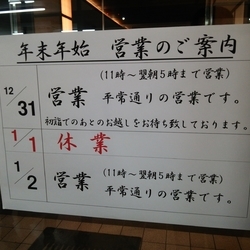 年末年始 営業のご案内
12/31 営業 (11時～翌朝5時まで営業)
平常通りの営業です。
初詣でのあとのお越しをお待ち致しております。
1/1 休業
1/2 営業 (11時～翌朝5時まで営業)
平常通りの営業です。